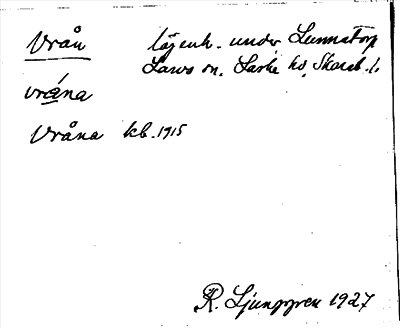 Vrån lägenh. under Lunnatorp
Larvs sn, Laske hd, Skarab. l.
vrǻna
Vråna kb. 1915
R. Ljunggren 1927